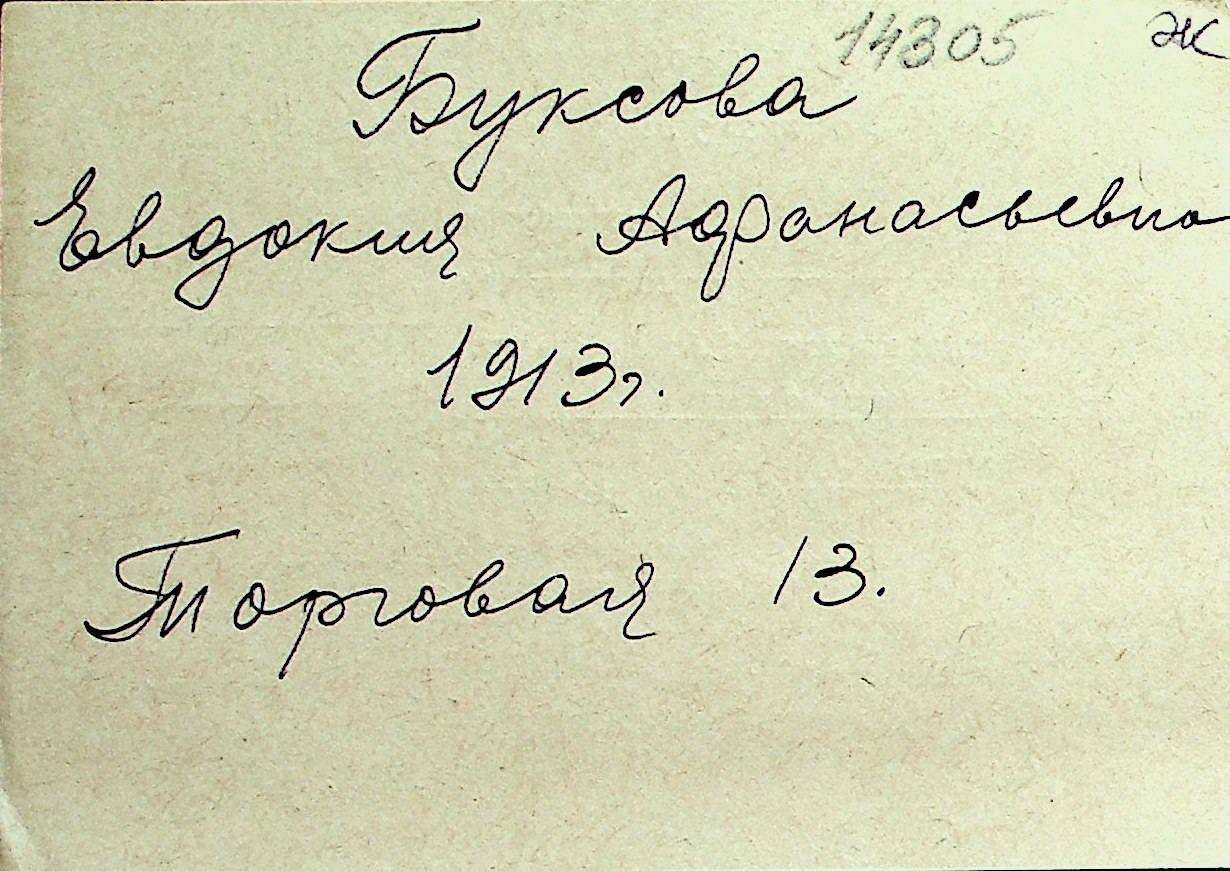 14305 Ж
Буксова
Евдокия Афанасьевна
1913г.
Торговая 13.